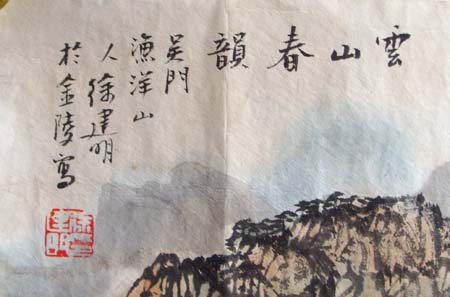 雲山春韻
吴門
漁洋山
人徐建明
於金陵寫
徐建明